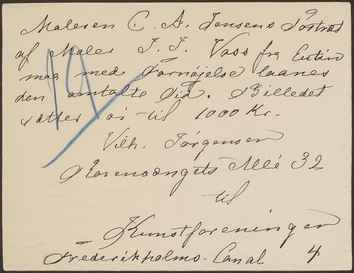 Maleren C. A. Jensens Portræt
af Maler J. J. Voss fra Eutin
maa med Fornøjelse laanes
den omtalte Tid. Billedet
sætter vi til 1000 Kr.
Vilh. Jørgensen
Rosenvængets Allé 32
til
Kunstforeningen
Frederikholms Canal 4